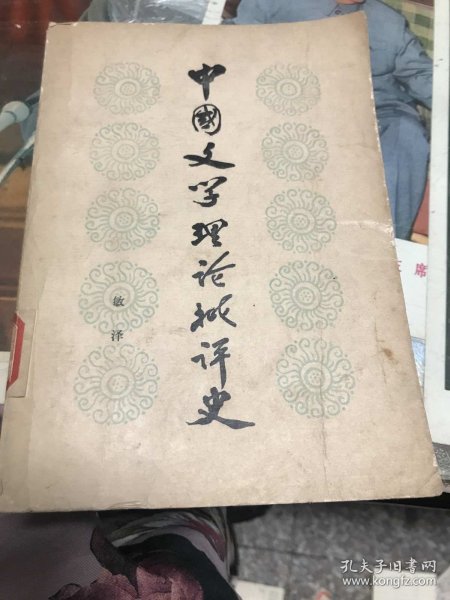 中國文学理论批评史
敏泽
席
孔夫子旧书网
www.kongfz.com